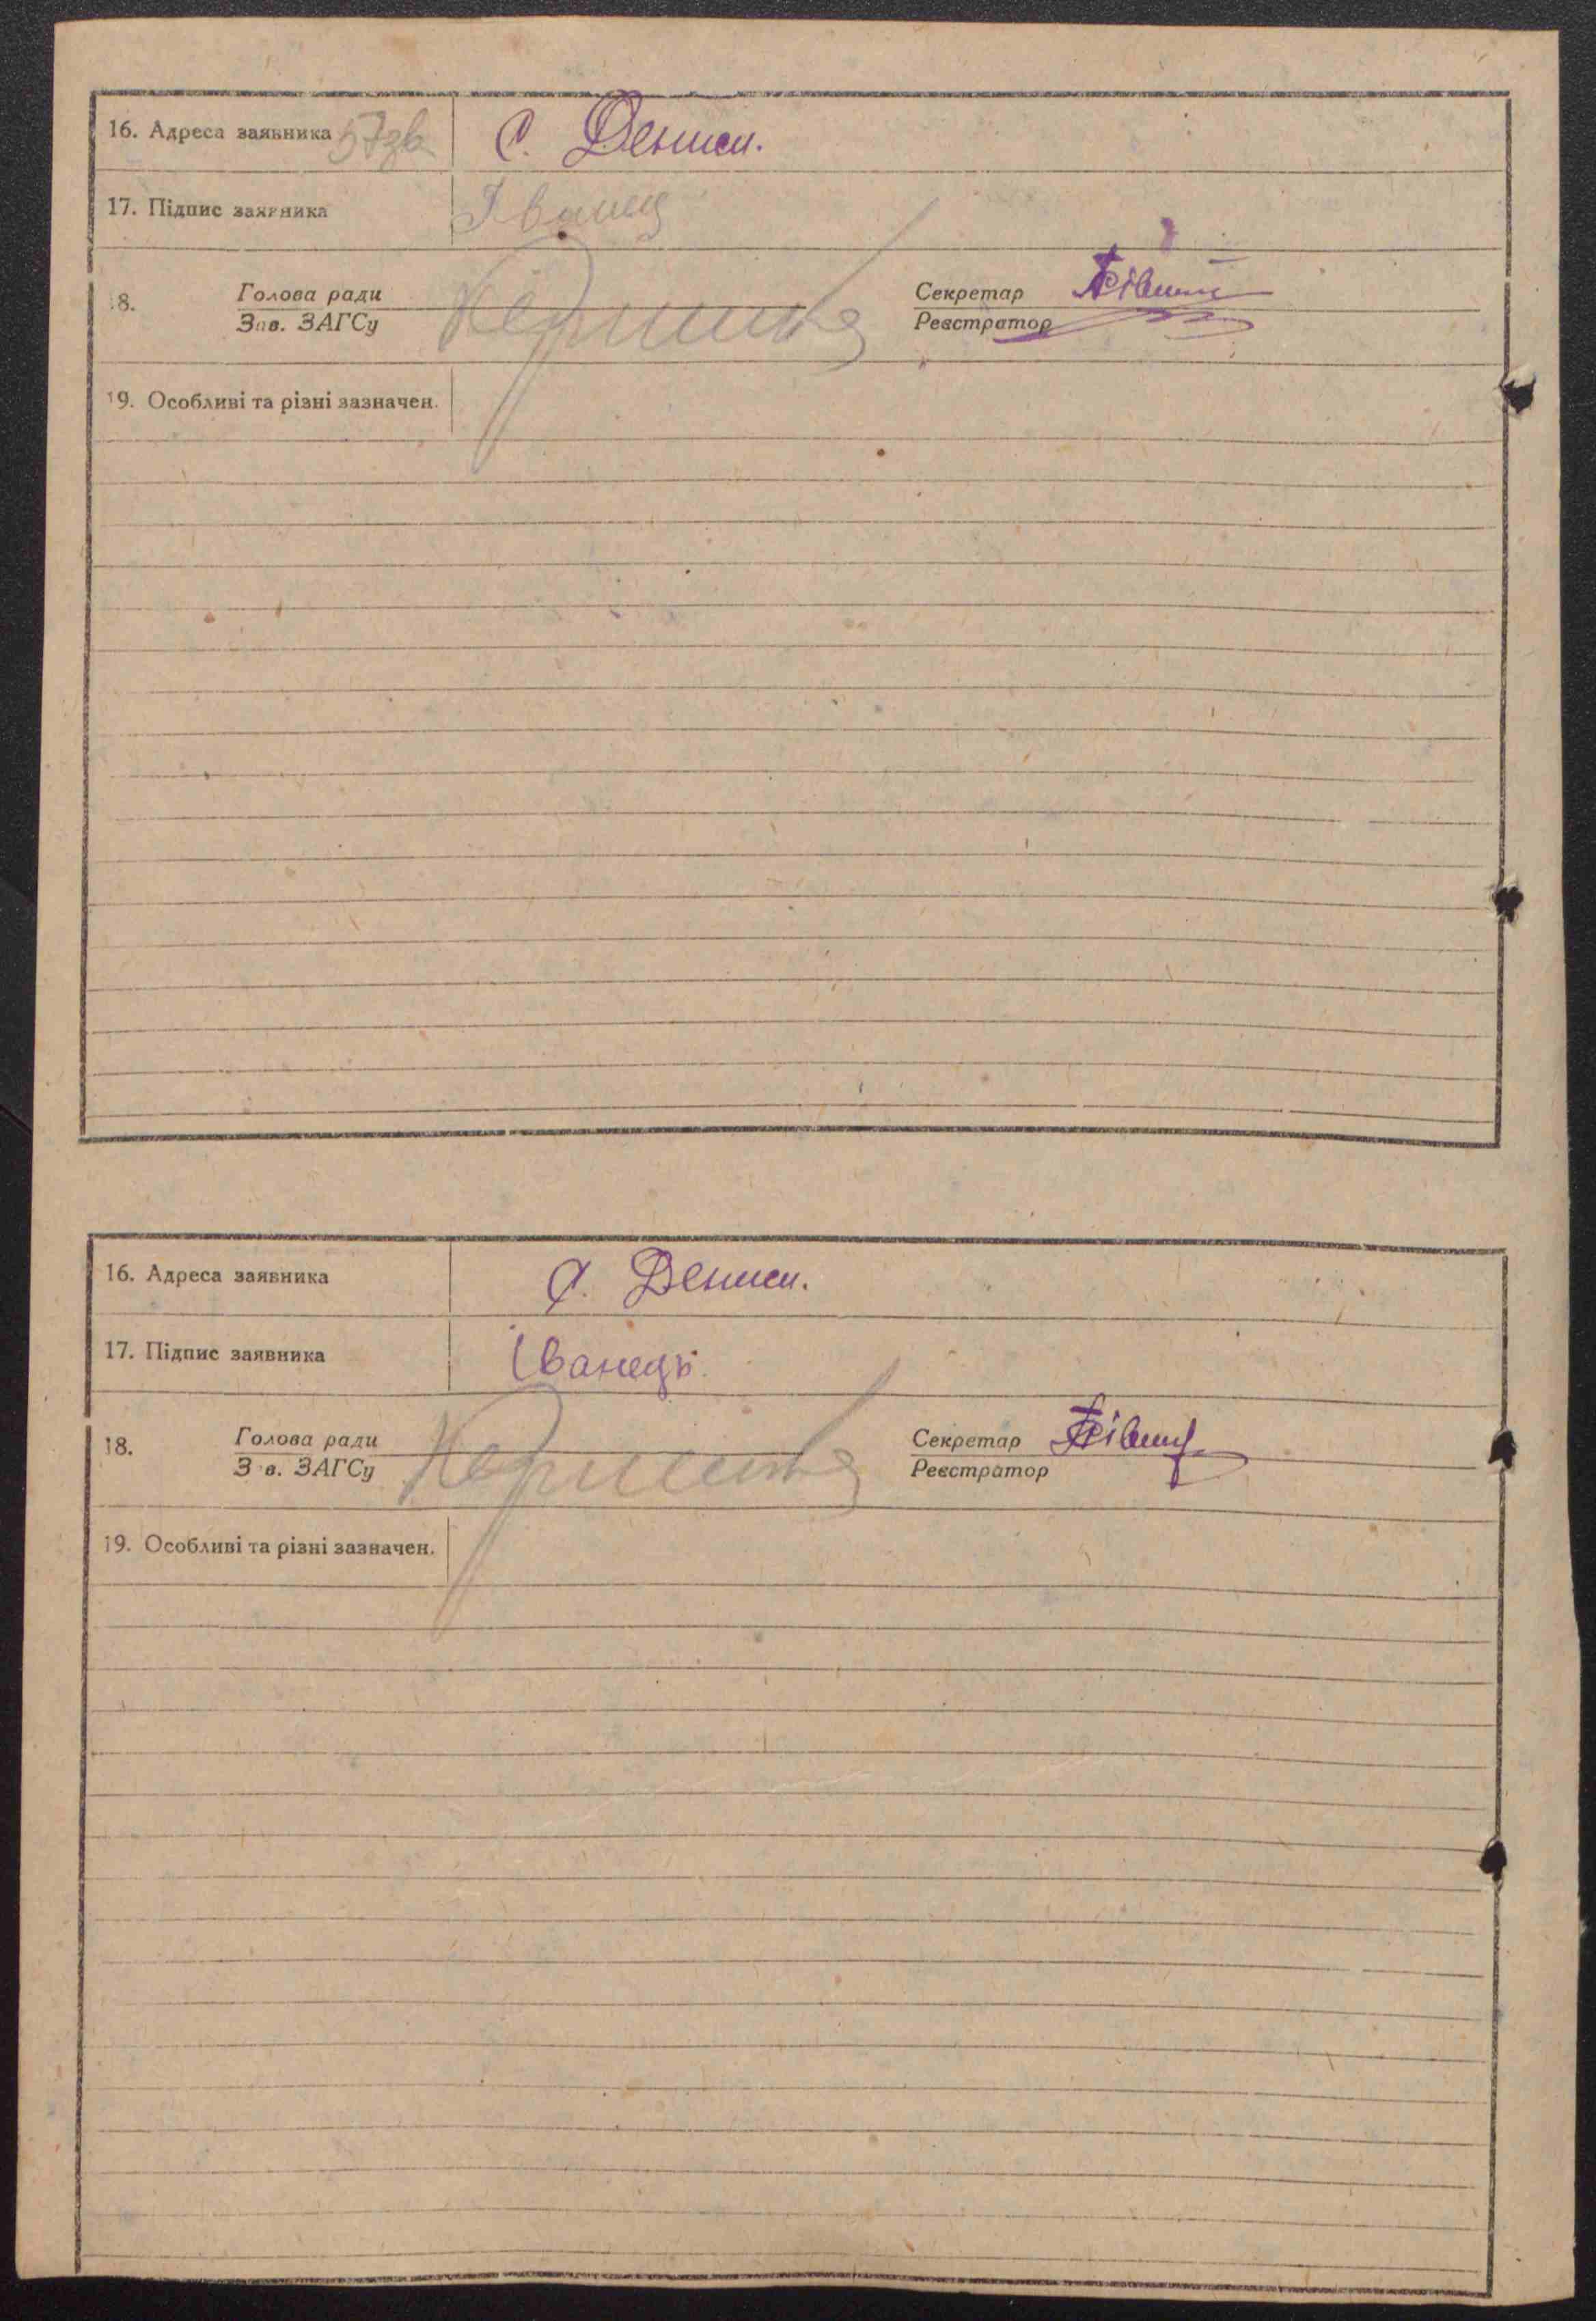 16. Адреса заявника 57зв с. Дениси.
17. Підпис заявника Іванец
18. Голова ради Секретар
Зав. ЗАГСу Реєстратор
19. Особливі та різні зазначен.
16. Адреса заявника с. Дениси.
17. Підпис заявника Іванець
18. Голова ради Секретар
Зав. ЗАГСу Реєстратор
19. Особливі та різні зазначен.